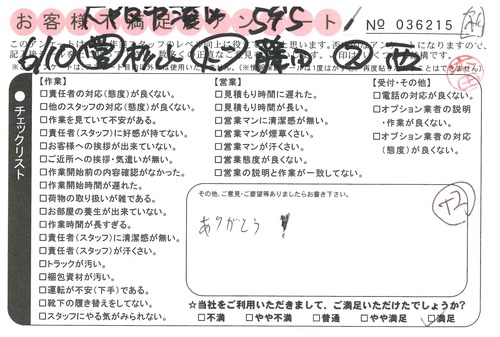 お客様不満足度アンケート
No 036215
チェックリスト
【作業】
□責任者の対応(態度)が良くない。
□他のスタッフの対応(態度)が良くない。
□作業を見ていて不安がある。
□責任者(スタッフ)に好感が持てない。
□お客様への挨拶が出来ていない。
□ご近所への挨拶・気遣いが無い。
□作業開始前の内容確認がなかった。
□作業開始時間が遅れた。
□荷物の取り扱いが雑である。
□お部屋の養生が出来ていない。
□作業時間が長すぎる。
□責任者(スタッフ)に清潔感が無い。
□責任者(スタッフ)が汗くさい。
□トラックが汚い。
□梱包資材が汚い。
□運転が不安(下手)である。
□靴下の履き替えをしてない。
□スタッフにやる気がみられない。
【営業】
□見積もり時間に遅れた。
□見積もり時間が長い。
□営業マンに清潔感が無い。
□営業マンが煙草くさい。
□営業マンが汗くさい。
□営業態度が良くない。
□営業の説明と作業が一致してない。
【受付・その他】
□電話の対応が良くない。
□オプション業者の説明
・作業が良くない。
□オプション業者の対応
(態度)が良くない。
その他、ご意見・ご要望等ありましたらお書き下さい。
ありがとう
+2
☆当社をご利用いただきまして、ご満足いただけたでしょうか?
□不満 □やや不満 □普通 □やや満足 □満足